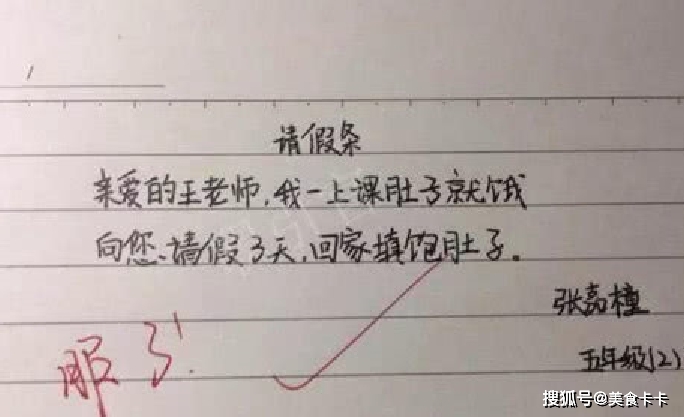 请假条
亲爱的王老师,我一上课肚子就饿
向您请假3天,回家填饱肚子。
张嘉橦
五年级(2)
服了!
搜狐号@美食卡卡